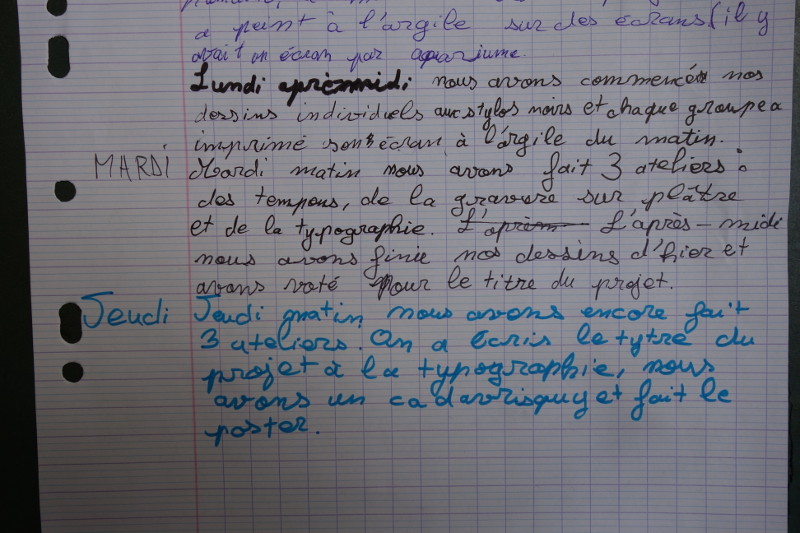 a peint à l'argile sur des écrans (il y
avait un écran par aquariume.
Lundi aprèsmidi nous avons commencé nos
dessins individuels aux stylos noirs et chaque groupe a
imprimé son écran à l'argile du matin.
MARDI Mardi matin nous avons fait 3 ateliers :
des tempons, de la gravure sur plâtre
et de la typographie. L'aprèm L'après-midi
nous avons finie nos dessins d'hier et
avons voté pour le titre du projet.
Jeudi Jeudi matin nous avons encore fait
3 ateliers. On a écris le tytre du
projet à la typographie, nous
avons un cadavrisquy et fait le
poster.